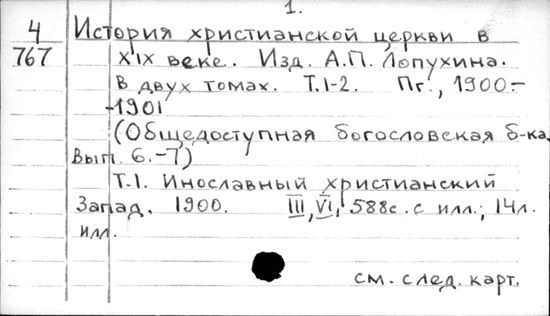 1.
4 История христианской церкви в
767 XIX веке. Изд. А.П. Лопухина.
В двух томах. Т.1-2. Пг., 1900.-
-1901
(Общедоступная богословская б-ка.
Вып. 6.-7)
Т.1. Инославный христианский
Запад. 1900. III, VI, 588с. с илл.; 14л.
илл.
см. след. карт.